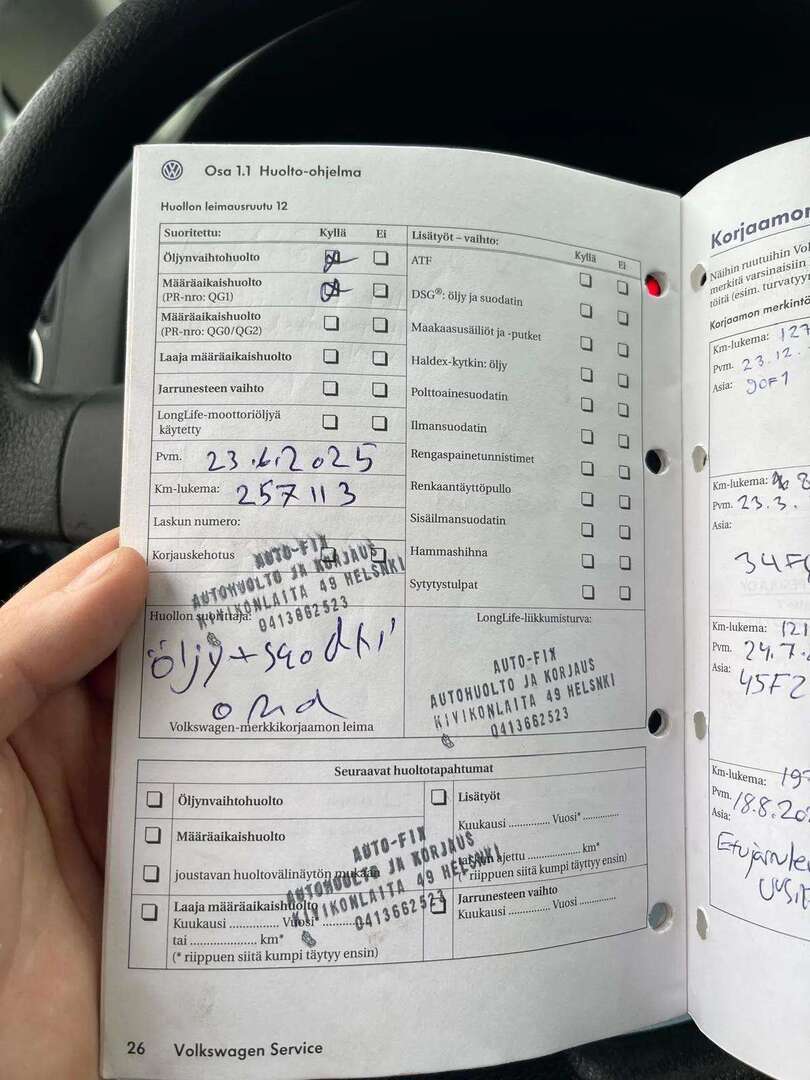 Osa 1.1 Huolto-ohjelma
Huollon leimausruutu 12
Suoritettu: Kyllä Ei
Öljynvaihtohuolto
Määräaikaishuolto
(PR-nro: QG1)
Määräaikaishuolto
(PR-nro: QG0/QG2)
Laaja määräaikaishuolto
Jarrunesteen vaihto
LongLife-moottoriöljyä
käytetty
Pvm. 23.6.2025
Km-lukema: 257113
Laskun numero:
Korjauskehotus
AUTO-FIX
AUTOHUOLTO JA KORJAUS
KIVIKONLAITA 49 HELSNKI
0413662523
Huollon suorittaja:
öljy+suodatin
oma
Volkswagen-merkkikorjaamon leima
Lisätyöt – vaihto: Kyllä Ei
ATF
DSG®: öljy ja suodatin
Maakaasusäiliöt ja -putket
Haldex-kytkin: öljy
Polttoainesuodatin
Ilmansuodatin
Rengaspainetunnistimet
Renkaantäyttöpullo
Sisäilmansuodatin
Hammashihna
Sytytystulpat
LongLife-liikkumisturva:
AUTO-FIX
AUTOHUOLTO JA KORJAUS
KIVIKONLAITA 49 HELSNKI
0413662523
Seuraavat huoltotapahtumat
Öljynvaihtohuolto
Määräaikaishuolto
joustavan huoltovälinäytön mukaan
Laaja määräaikaishuolto
Kuukausi .............. Vuosi* ..............
tai .................... km*
(* riippuen siitä kumpi täytyy ensin)
Lisätyöt
Kuukausi .............. Vuosi* ..............
ajettu .................... km*
(* riippuen siitä kumpi täytyy ensin)
Jarrunesteen vaihto
Kuukausi .............. Vuosi ..............
AUTO-FIX
AUTOHUOLTO JA KORJAUS
KIVIKONLAITA 49 HELSNKI
0413662523
26 Volkswagen Service
Korjaamon
Näihin ruutuihin
merkitä varsinaisiin
töitä (esim.
Korjaamon
Km-lukema: 127
Pvm. 23.12.
Asia: 90F1
Km-lukema:
Pvm. 23.3.
Asia:
Km-lukema: 121
Pvm. 24.7.
Asia: 45F2
Km-lukema: 197
Pvm. 18.8.20
Asia: